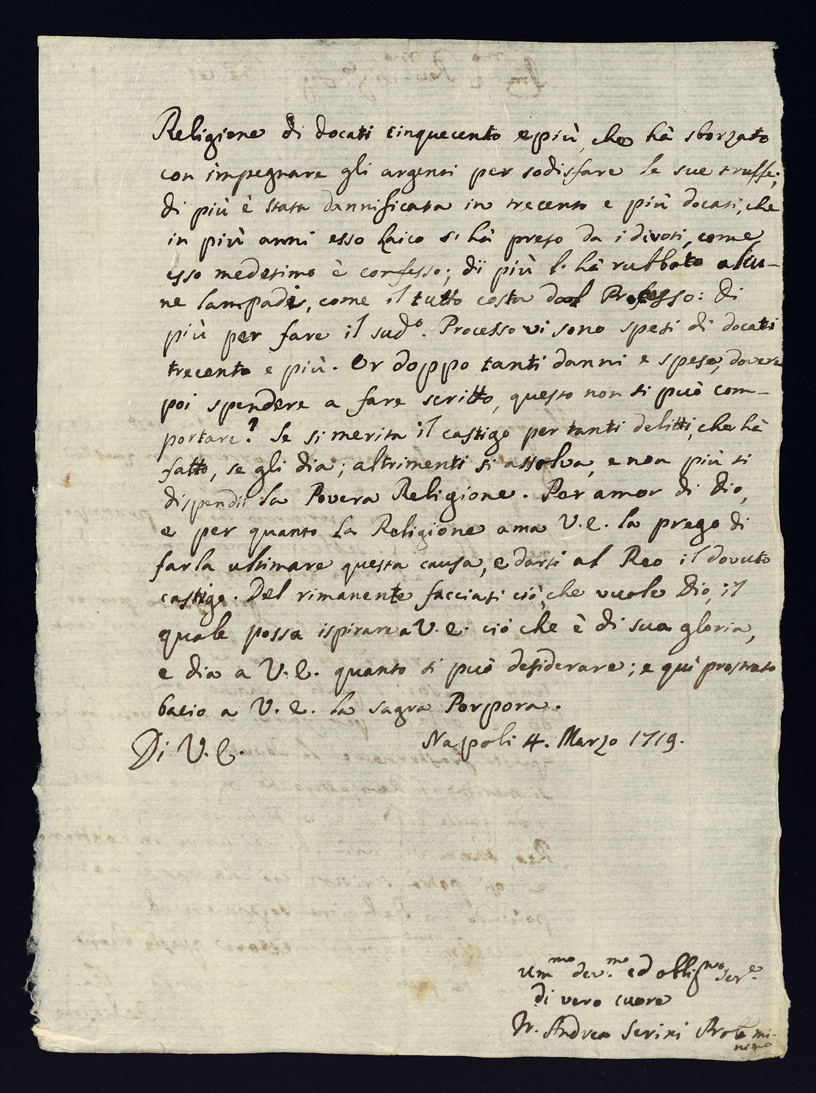 Religione di docati cinquecento e più, che hà sborzato
con impegnare gli argenti per sodisfare le sue truffe;
di più è stata dannificata in trecento e più docati, che
in più anni esso Laico si hà preso da i divoti, come
esso medesimo è confesso; di più l'hà rubbato alcu-
ne lampade, come il tutto costa dal Processo: di
più per fare il sud.º Processo vi sono spesi di docati
trecento e più. Or doppo tanti danni e spese, dovere
poi spendere a fare scritto, questo non si può com-
portare? Se si merita il castigo per tanti delitti, che hà
fatto, se gli dia; altrimenti si assolva, e non più si
dispendii la Povera Religione. Per amor di Dio,
e per quanto La Religione ama V.E. la prego di
farla ultimare questa causa, e darsi al Reo il dovuto
castigo. Del rimanente facciasi ciò, che vuole Dio, il
quale possa ispirare a V.E. ciò che è di sua gloria,
e dia a V.E. quanto si può desiderare; e quì prostrato
bacio a V.E. la sagra Porpora.
Di V.E. Napoli 4. Marzo 1719.
Um.mo dev.mo ed obblig.mo ser.e
di vero cuore
Fr. Andrea Serini Prole mi-
nimo